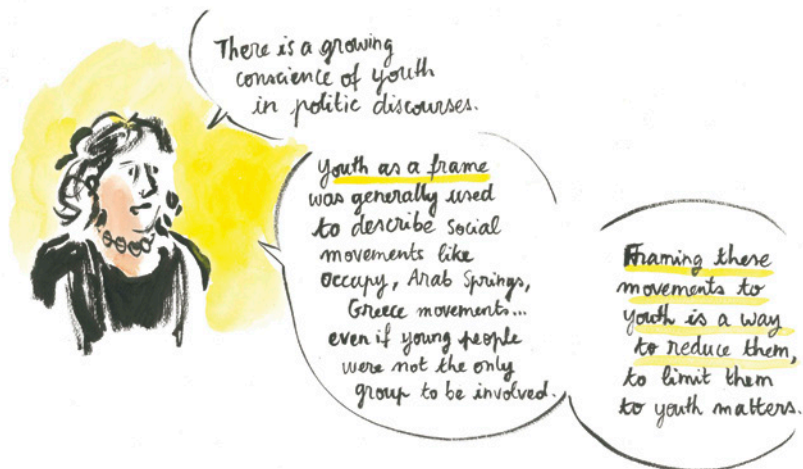 There is a growing
conscience of youth
in politic discourses.
Youth as a frame
was generally used
to describe social
movements like
Occupy, Arab Springs,
Greece movements...
even if young people
were not the only
group to be involved.
Framing these
movements to
youth is a way
to reduce them,
to limit them
to youth matters.